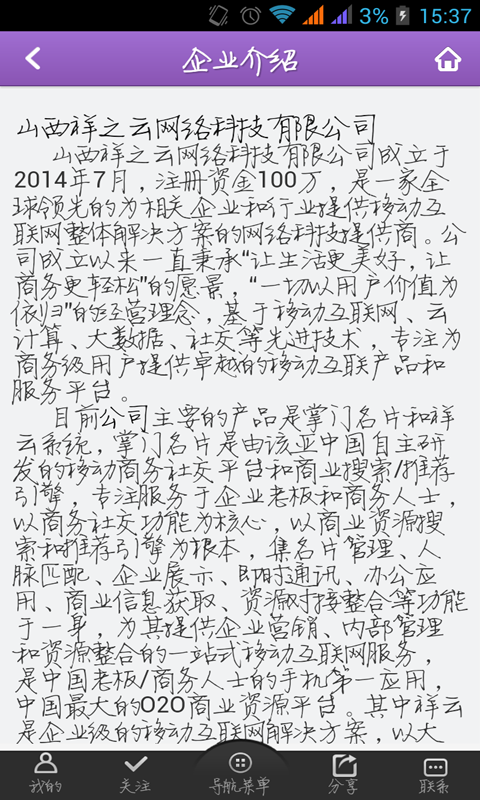 3% 15:37
企业介绍
山西祥之云网络科技有限公司
山西祥之云网络科技有限公司成立于
2014年7月，注册资金100万，是一家全
球领先的为相关企业和行业提供移动互
联网整体解决方案的网络科技提供商。公
司成立以来一直秉承“让生活更美好，让
商务更轻松”的愿景，“一切以用户价值为
依归”的经营理念，基于移动互联网、云
计算、大数据、社交等先进技术，专注为
商务级用户提供卓越的移动互联产品和
服务平台。
目前公司主要的产品是掌门名片和祥
云系统，掌门名片是由该亚中国自主研
发的移动商务社交平台和商业搜索/推荐
引擎，专注服务于企业老板和商务人士，
以商务社交功能为核心，以商业资源搜
索和推荐引擎为根本，集名片管理、人
脉匹配、企业展示、即时通讯、办公应
用、商业信息获取、资源对接整合等功能
于一身，为其提供企业营销、内部管理
和资源整合的一站式移动互联网服务，
是中国老板/商务人士的手机第一应用，
中国最大的O2O商业资源平台。其中祥云
是企业级的移动互联网解决方案，以大
我的 关注 导航菜单 分享 联系